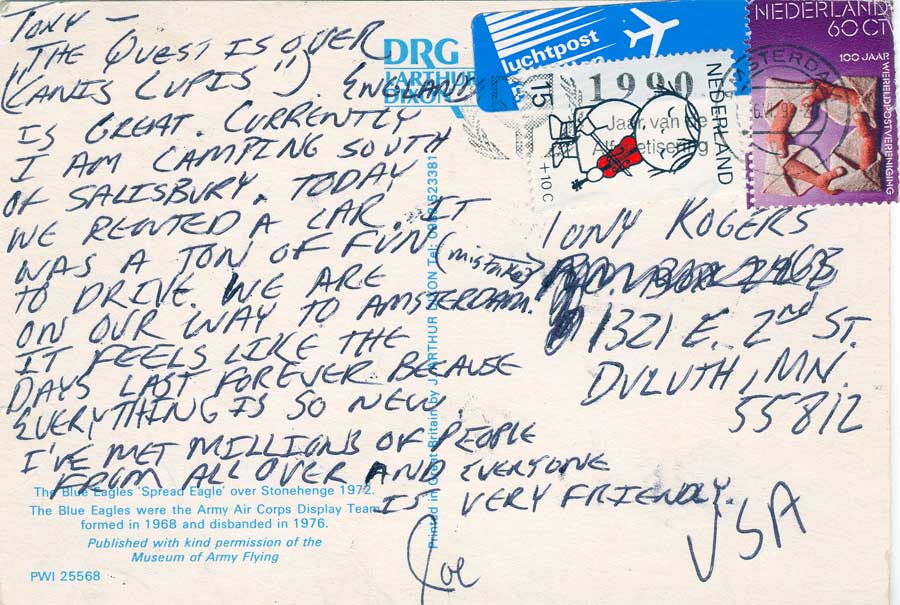 TONY -
"THE QUEST IS OVER
(CANIS LUPIS"). ENGLAND
IS GREAT. CURRENTLY
I AM CAMPING SOUTH
OF SALISBURY. TODAY
WE RENTED A CAR. IT
WAS A TON OF FUN
TO DRIVE. WE ARE
ON OUR WAY TO AMSTERDAM.
IT FEELS LIKE THE
DAYS LAST FOREVER BECAUSE
EVERYTHING IS SO NEW.
I'VE MET MILLIONS OF PEOPLE
FROM ALL OVER AND EVERYONE
IS VERY FRIENDLY.
Joe
DRG
J.ARTHUR
DIXON
luchtpost
1990
Jaar van de
Alfabetisering
NEDERLAND
15
+10C
NEDERLAND
60 CT
100 JAAR WERELDPOSTVERENIGING
AMSTERDAM
TONY ROGERS
(mistake)
1321 E. 2nd ST.
DULUTH, MN.
55812
USA
Printed in Great Britain by J. ARTHUR DIXON Tel:
The Blue Eagles 'Spread Eagle' over Stonehenge 1972.
The Blue Eagles were the Army Air Corps Display Team
formed in 1968 and disbanded in 1976.
Published with kind permission of the
Museum of Army Flying
PWI 25568